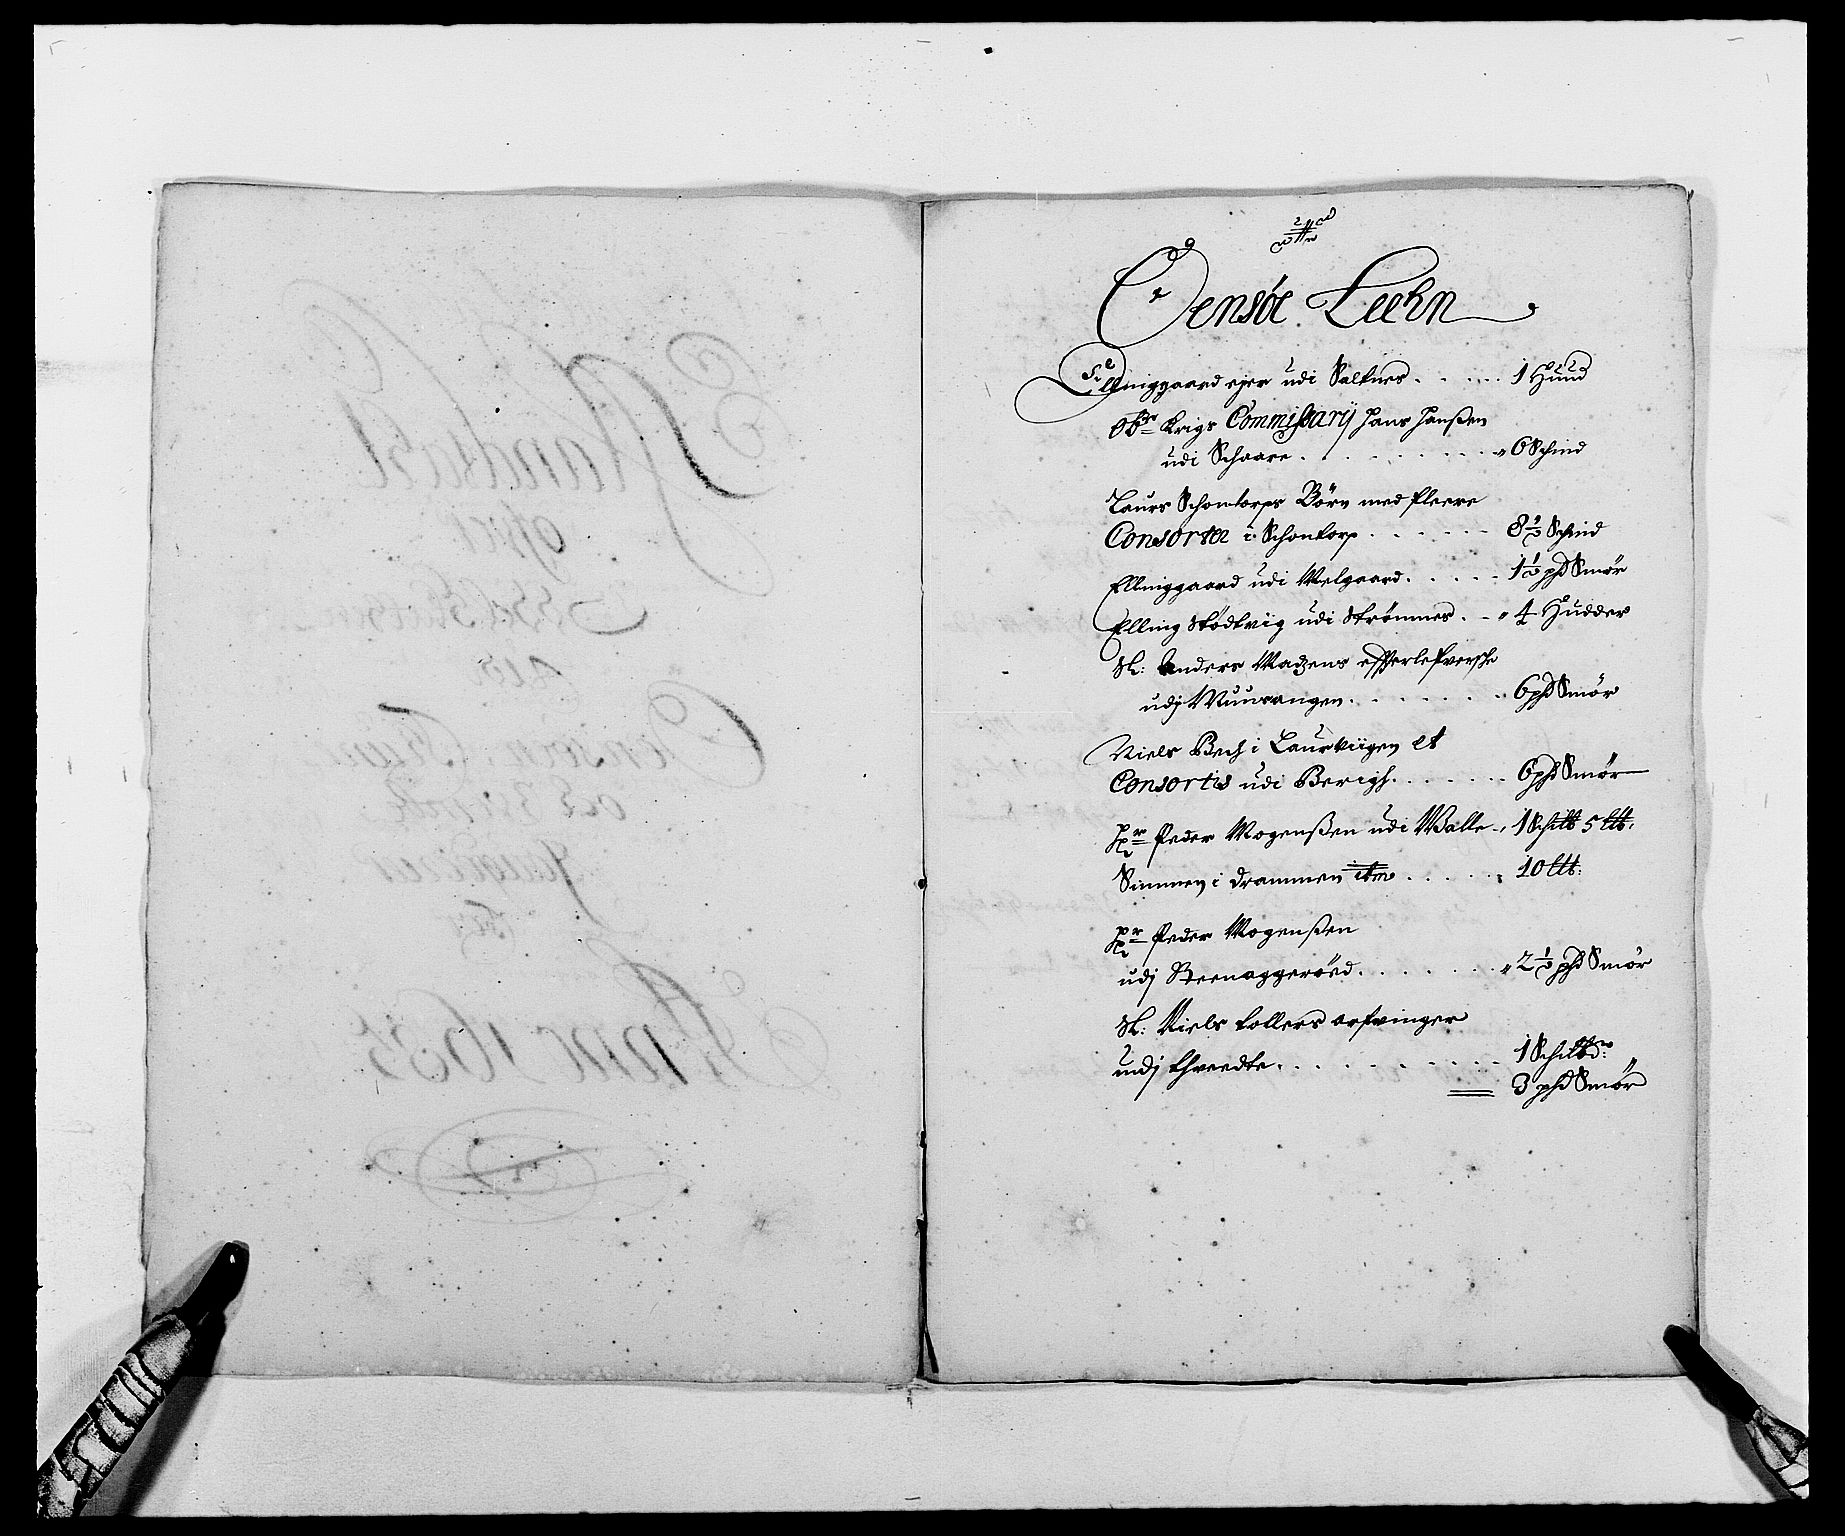 Oensøe Leehn
Ellinggaard ejer udi Saltnes . . . . . 1 Hund
Obr Krigs Commissarij Hans Hanßen
udi Schaare . . . . . . . . . . 6 Schind
Laurs Schontorps Börn med fleere
Consorter i Schontorp . . . . . . 8½ Schind
Ellinggaard udi Welgaard . . . . . 1½ pd Smør
Elling Stødtvig udi Strømnes . . 4 Hudder
Sl: Anders Madzens effterlefversche
udj . . . . . . . . 6 pd Smør
Niels Bech i Laurviigen et
Consortis udi Berigh . . . . . . 6 pd Smør
Hr Peder Mogenßen udi Walle . . 1 Schilt 5 Ltt.
Simmen i Drammen item . . . . . 10 Ltt:
Hr Peder Mogenßen
udj Steenaggerød . . . . . . . 2½ pd Smør
Sl: Niels Tollers arfvinger
udj threedte . . . . . . . . . . 1 Schiltd
3 pd Smør